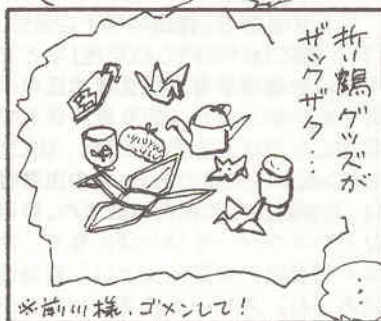 折り鶴グッズが
ザックザク…
※前川様、ゴメンして！
…